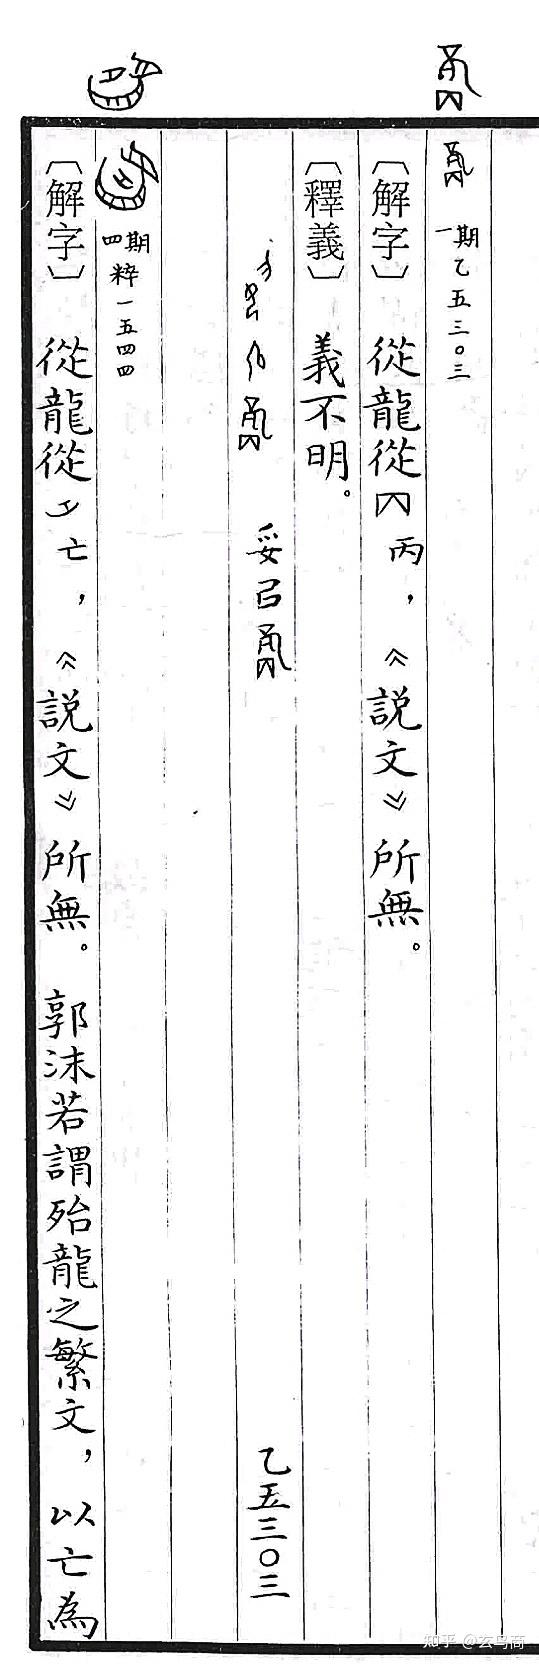 一期乙五三〇三
〔解字〕 從龍從 丙,《説文》所無。
〔釋義〕 義不明。
妥㠯 乙五三〇三
四期粹一五四四
〔解字〕 從龍從 亡,《説文》所無。郭沫若謂殆龍之繁文,以亡為
知乎 @玄鸟商